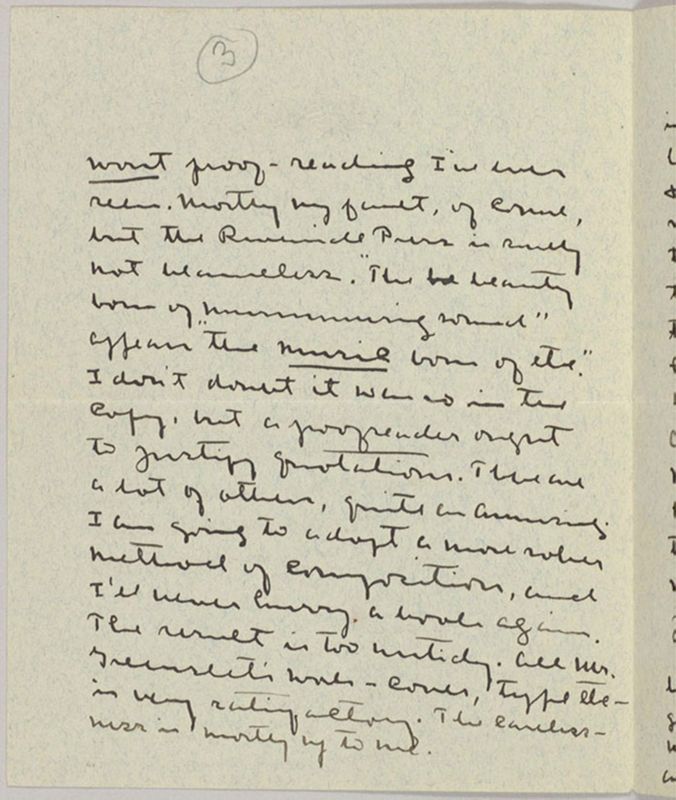 3
worst proof-reading I've ever
seen. Mostly my fault, of course,
but the Riverside Press is surely
not blameless. "The beauty
born of murmuring sound"
appears "the music born of etc."
I don't doubt it was so in the
copy, but a proofreader ought
to justify quotations. There are
a lot of others, quite as amusing.
I am going to adopt a more sober
method of composition, and
I'll never hurry a book again.
The result is too untidy. All Mr.
Greenslet's work - cover, type etc -
is very satisfactory. The careless-
ness is mostly up to me.